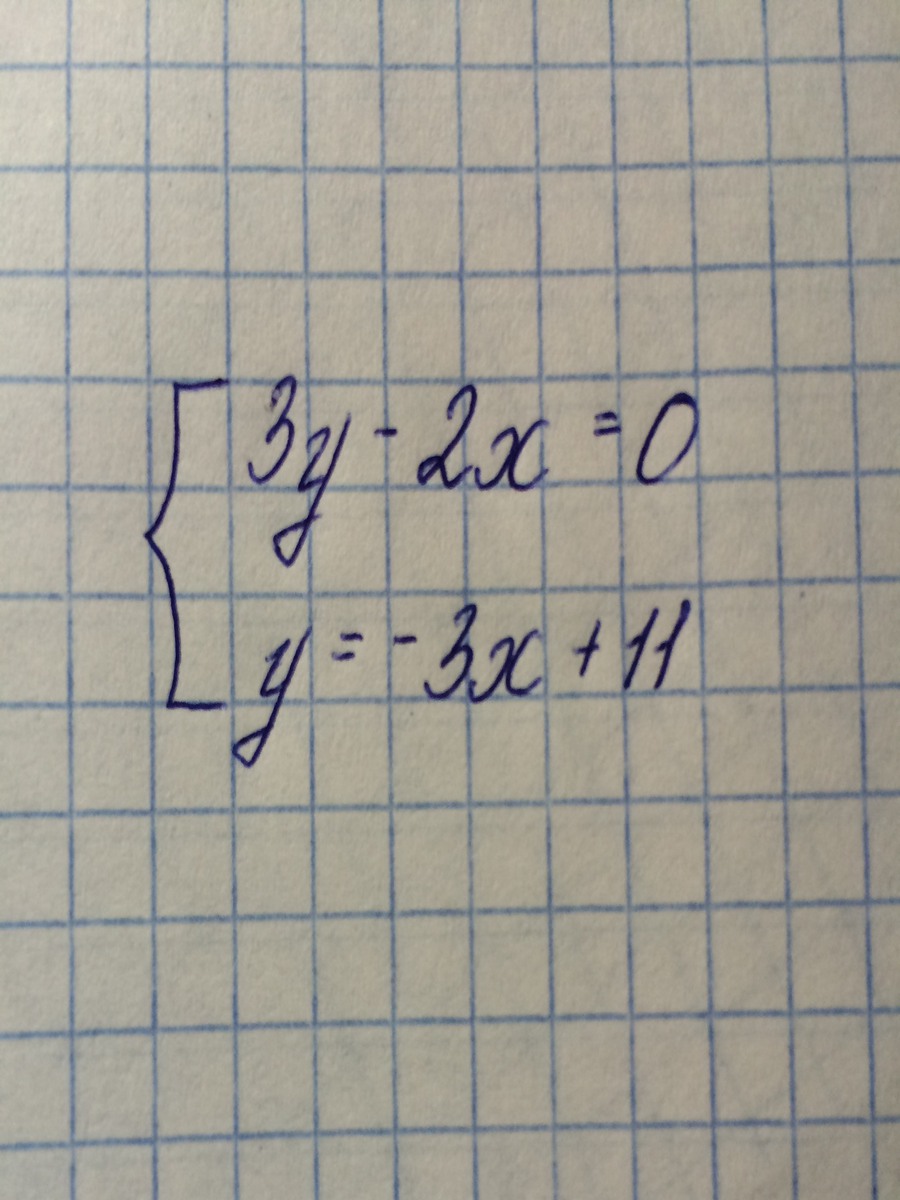 3y - 2x = 0
y = - 3x + 11